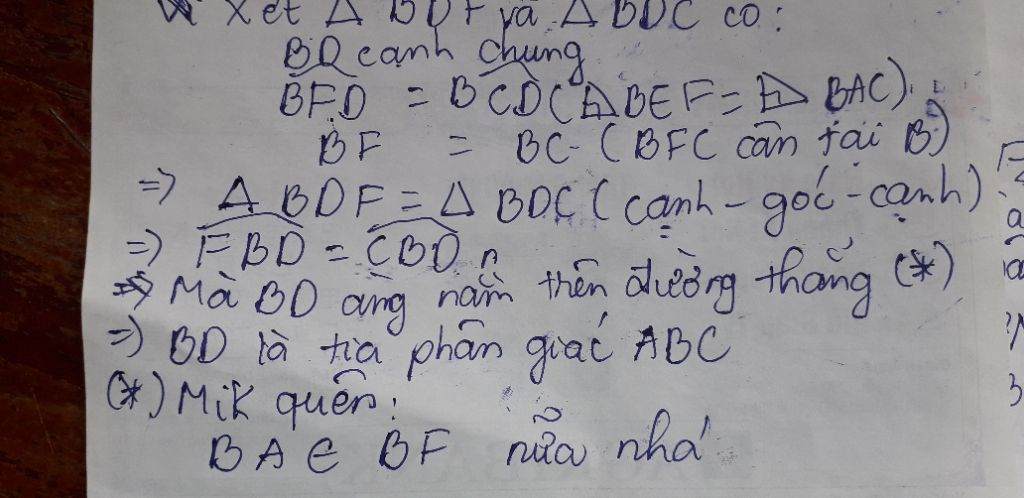 Xét Δ BDF và Δ BDC có:
BD cạnh chung
BFD = BCD (Δ BEF = Δ BAC)
BF = BC (BFC cân tại B)
=> Δ BDF = Δ BDC (cạnh - góc - cạnh)
=> FBD = CBD
Mà BD nằm trên đường thẳng (*)
=> BD là tia phân giác ABC
(*) Mik quên:
BA ∈ BF nữa nhá